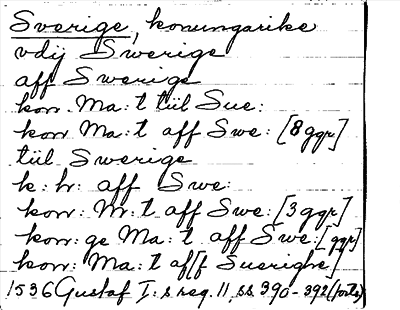 Sverige, konungarike
vdij Swerige
aff Swerige
kon. Ma:t till Sue:
kon Ma:t aff Swe: [8 ggr]
till Swerige
k: hr: aff Swe:
kon: M:t aff Swe: [3 ggr]
kon: ge Ma:t aff Swe: [ggr]
kon: Ma:t af[f Suerighe]
1536 Gustaf I:s reg. 11, ss. 390-392 (forts)